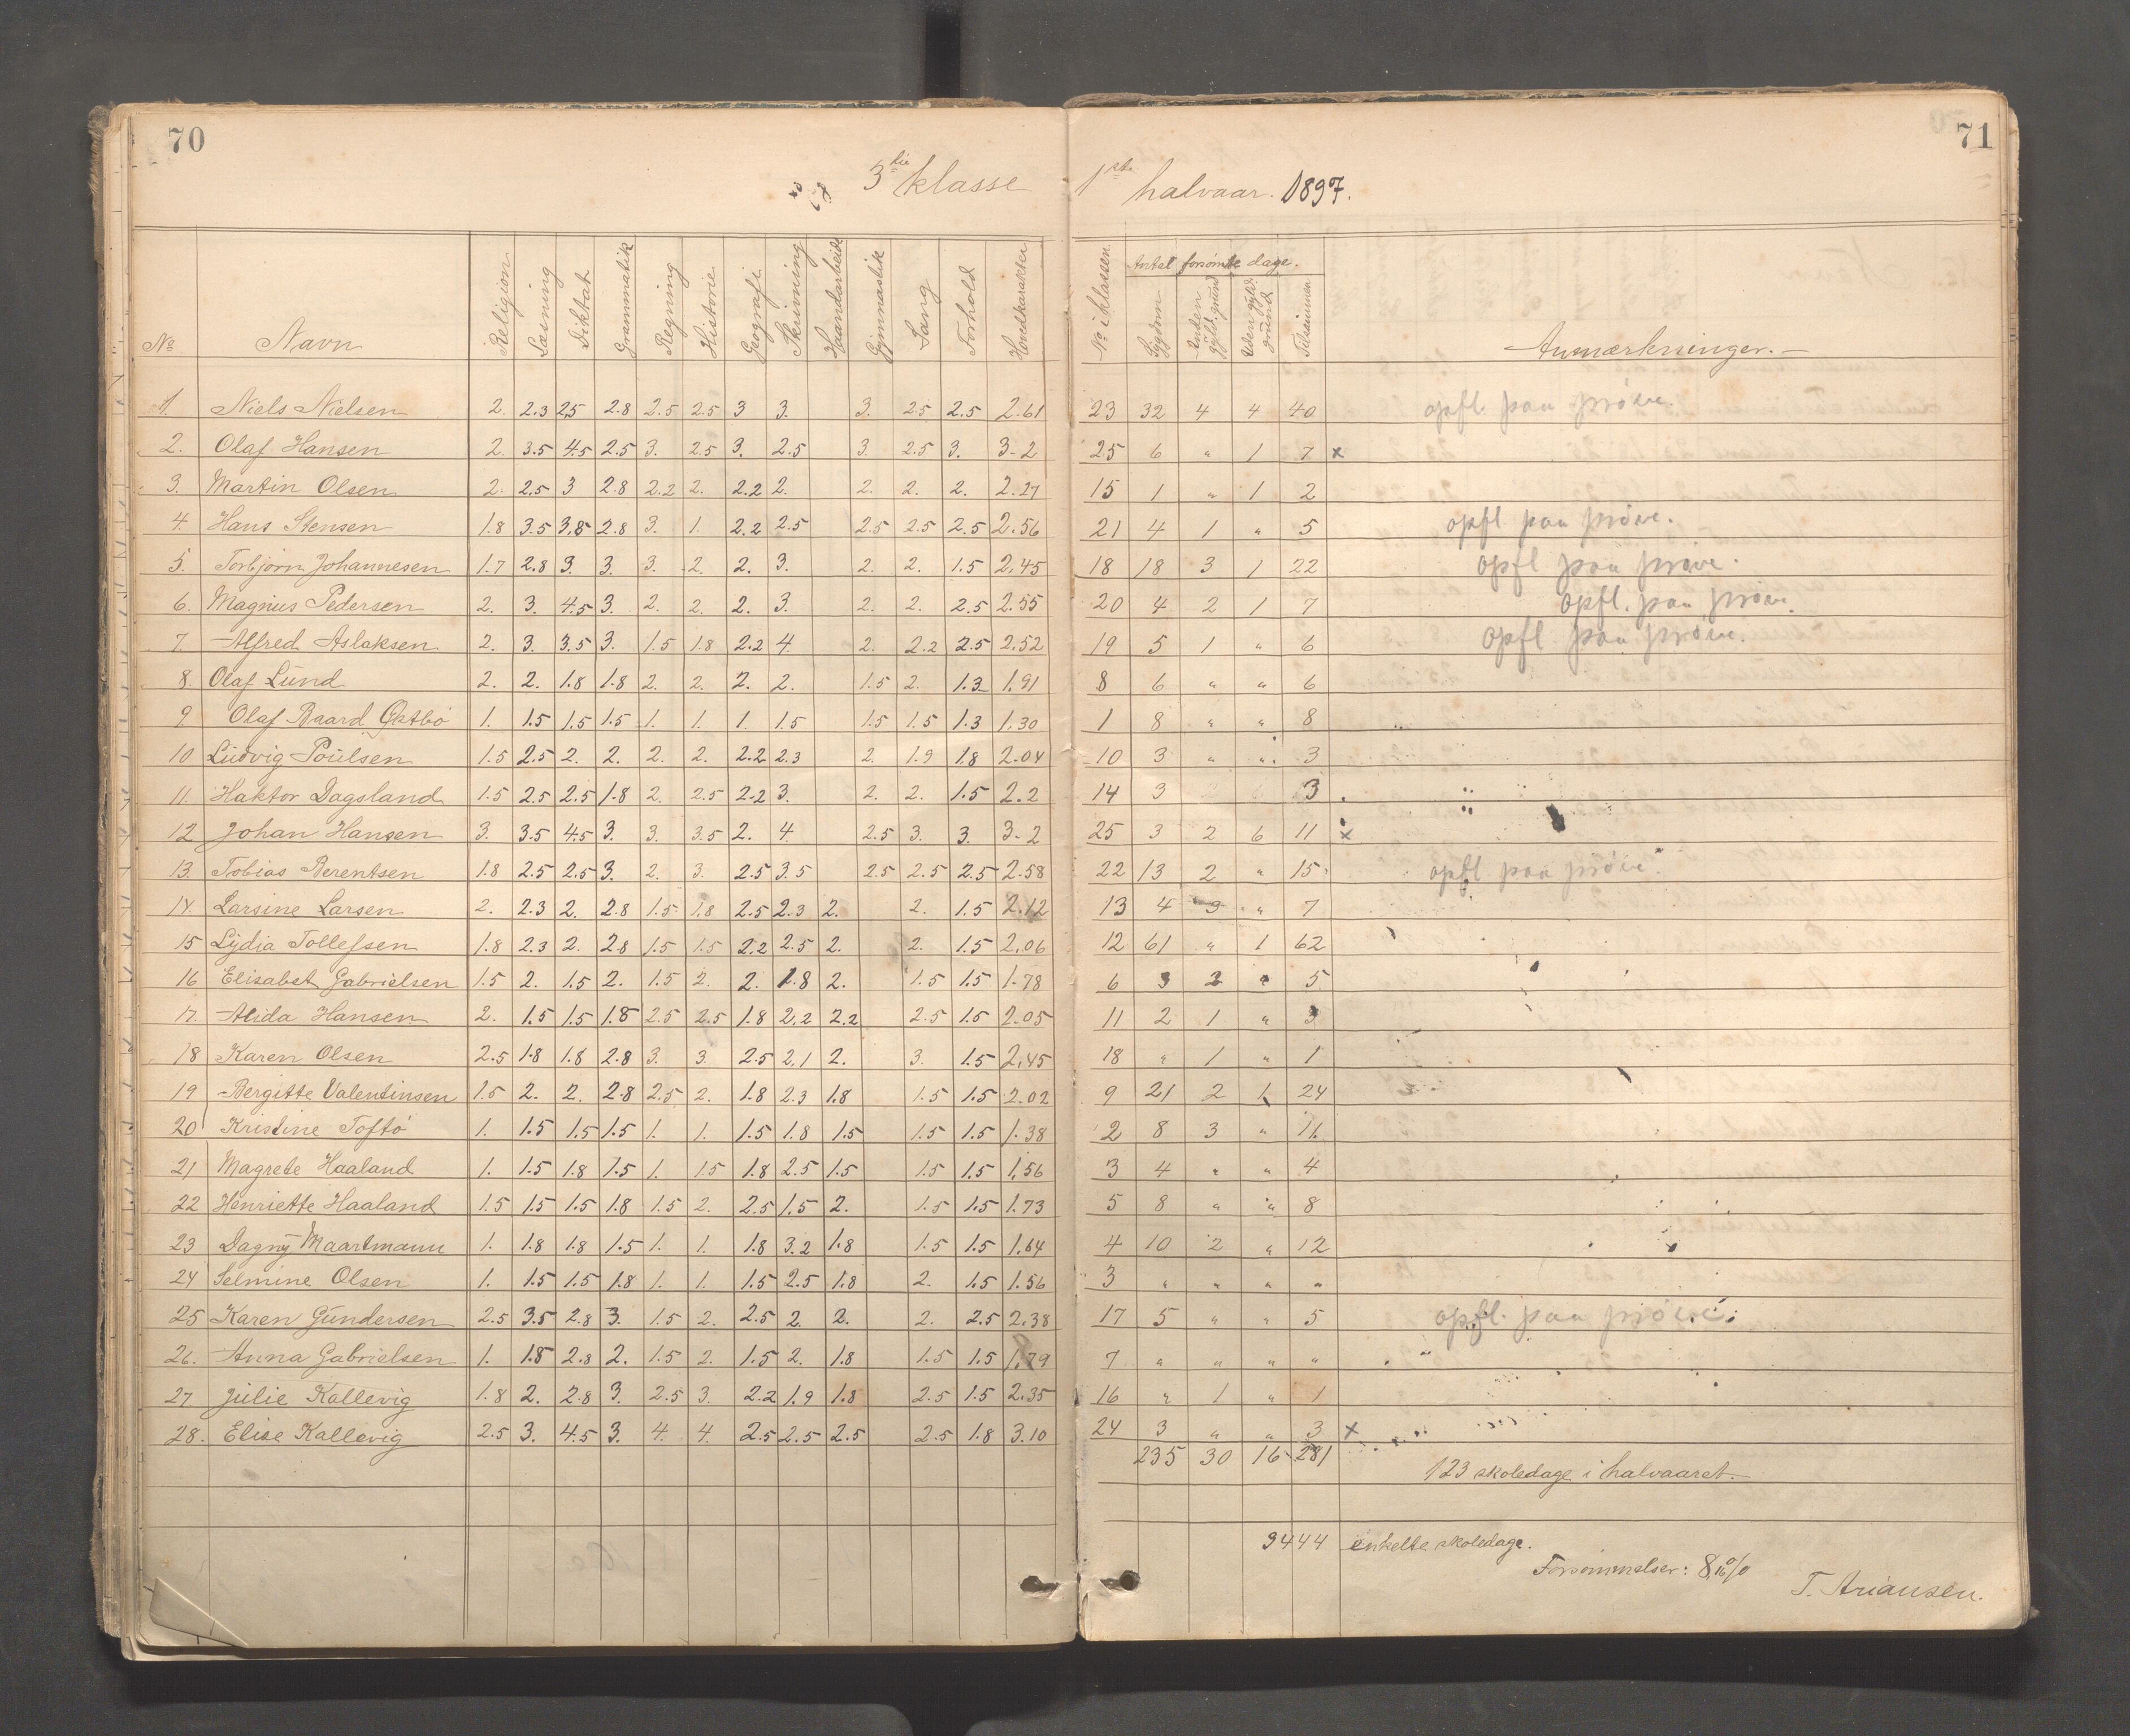 70
71
3die klasse 1ste halvaar. 1897.
No Navn Religion Læsning Diktat Grammatik Regning Historie Geografi Skrivning Haandarbeide Gymnastik Sang Forhold Hovedkarakter No i klassen Antal forsømte dage. Sygdom Anden gyld. grund Uden gyld. grund Tilsammen Anmærkninger.
1. Niels Nielsen 2. 2.3 2.5 2.8 2.5 2.5 3 3. 3. 2.5 2.5 2.61 23 32 4 4 40 opfl. paa prøve.
2. Olaf Hansen 2. 3.5 4.5 2.5 3. 2.5 3. 2.5 3. 2.5 3. 3-2 25 6 " 1 7 x
3. Martin Olsen 2. 2.5 3 2.8 2.2 2. 2.2 2. 2. 2. 2. 2.27 15 1 " 1 2
4. Hans Stensen 1.8 3.5 3.5 2.8 3. 1. 2.2 2.5 2.5 2.5 2.5 2.56 21 4 1 " 5 opfl paa prøve.
5. Torbjørn Johannesen 1.7 2.8 3. 3. 3. 2. 2. 3. 2. 2. 1.5 2.45 18 18 3 1 22 opfl paa prøve.
6. Magnus Pedersen 2. 3. 4.5 3. 2. 2. 2. 3. 2. 2. 2.5 2.55 20 4 2 1 7 opfl. paa prøve.
7 Alfred Aslaksen 2. 3. 3.5 3. 1.5 1.8 2.2 4. 2. 2.2 2.5 2.52 19 5 1 " 6 opfl. paa prøve.
8. Olaf Lund 2. 2. 1.8 1.8 2. 2. 2. 2. 1.5 2. 1.3 1.91 8 6 " " 6
9 Olaf Baard Østbø 1. 1.5 1.5 1.5 1. 1. 1 1.5 1.5 1.5 1.3 1.30 1 8 " " 8
10 Ludvig Poulsen 1.5 2.5 2. 2. 2. 2. 2.2 2.3 2. 1.9 1.8 2.04 10 3 " " 3
11. Haktor Dagsland 1.5 2.5 2.5 1.8 2. 2.5 2.2 3. 2. 2. 1.5 2.2 14 3 3
12 Johan Hansen 3. 3.5 4.5 3. 3. 3.5 2. 4. 2.5 3. 3. 3-2 25 3 2 6 11 x
13. Tobias Berentsen 1.8 2.5 2.5 3. 2. 3. 2.5 3.5 2.5 2.5 2.5 2.58 22 13 2 " 15 opfl. paa prøve.
14. Larsine Larsen 2. 2.3 2. 2.8 1.5 1.8 2.5 2.3 2. 2. 1.5 2.12 13 4 3 " 7
15 Lydia Tollefsen 1.8 2.3 2. 2.8 1.5 1.5 2.2 2.5 2. 2. 1.5 2.06 12 61 " 1 62
16 Elisabet Gabrielsen 1.5 2. 1.5 2. 1.5 2. 2. 1.8 2. 1.5 1.5 1.78 6 3 2 " 5
17. Alida Hansen 2. 1.5 1.5 1.8 2.5 2.5 1.8 2.2 2.2 2.5 1.5 2.05 11 2 1 " 3
18 Karen Olsen 2.5 1.8 1.8 2.8 3. 3. 2.5 2.1 2. 3. 1.5 2.45 18 " 1 " 1
19 Bergitte Valentinsen 1.5 2. 2. 2.8 2.5 2. 1.8 2.3 1.8 1.5 1.5 2.02 9 21 2 1 24
20 Kristine Toftø 1. 1.5 1.5 1.5 1. 1. 1.5 1.8 1.5 1.5 1.5 1.38 2 8 3 " 11
21 Magrete Haaland 1. 1.5 1.8 1.5 1. 1.5 1.8 2.5 1.5 1.5 1.5 1.56 3 4 " " 4
22 Henriette Haaland 1.5 1.5 1.5 1.8 1.5 2. 2.5 1.5 2. 1.5 1.5 1.73 5 8 " " 8
23 Dagny Maartmann 1. 1.8 1.8 1.5 1. 1. 1.8 3.2 1.8 1.5 1.5 1.64 4 10 2 " 12
24 Selmine Olsen 1. 1.5 1.5 1.8 1. 1. 1.5 2.5 1.8 2. 1.5 1.56 3 " " " "
25 Karen Gundersen 2.5 3.5 2.8 3. 1.5 2. 2.5 2. 2. 2. 2.5 2.38 17 5 " " 5 opfl. paa prøve.
26. Anna Gabrielsen 1. 1.8 2.8 2. 1.5 2. 1.5 2. 1.8 1.5 1.5 1.79 7 " " " "
27. Julie Kallevig 1.8 2. 2.8 3. 2.5 3. 2.2 1.9 1.8 2.5 1.5 2.35 16 " 1 " 1
28. Elise Kallevig 2.5 3. 4.5 3. 4. 4. 2.5 2.5 2.5 2.5 1.8 3.10 24 3 " " 3 x
235 30 16 281
123 skoledage i halvaaret.
3444 enkelte skoledage.
Forsømmelser: 8,16 %
T. Ariansen.